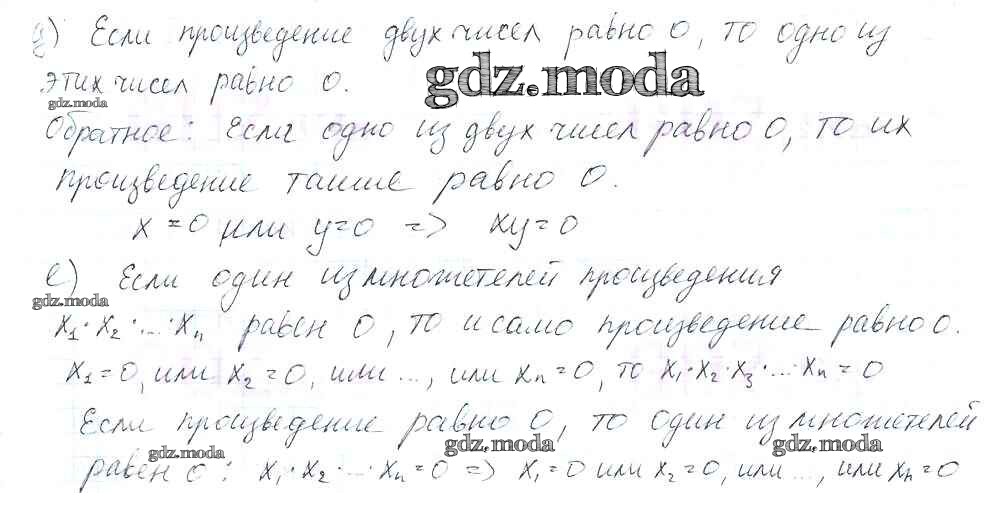 д) Если произведение двух чисел равно 0, то одно из
этих чисел равно 0.
gdz.moda
gdz.moda
Обратное: Если одно из двух чисел равно 0, то их
произведение также равно 0.
x = 0 или y=0 => xy=0
е) Если один из множетелей произведения
gdz.moda
x₁·x₂·...·xₙ равен 0, то и само произведение равно 0.
x₁=0, или x₂=0, или ..., или xₙ=0, то x₁·x₂·x₃·...·xₙ=0
Если произведение равно 0, то один из множетелей
gdz.moda gdz.moda gdz.moda
равен 0: x₁·x₂·...·xₙ=0 => x₁=0 или x₂=0, или ..., или xₙ=0